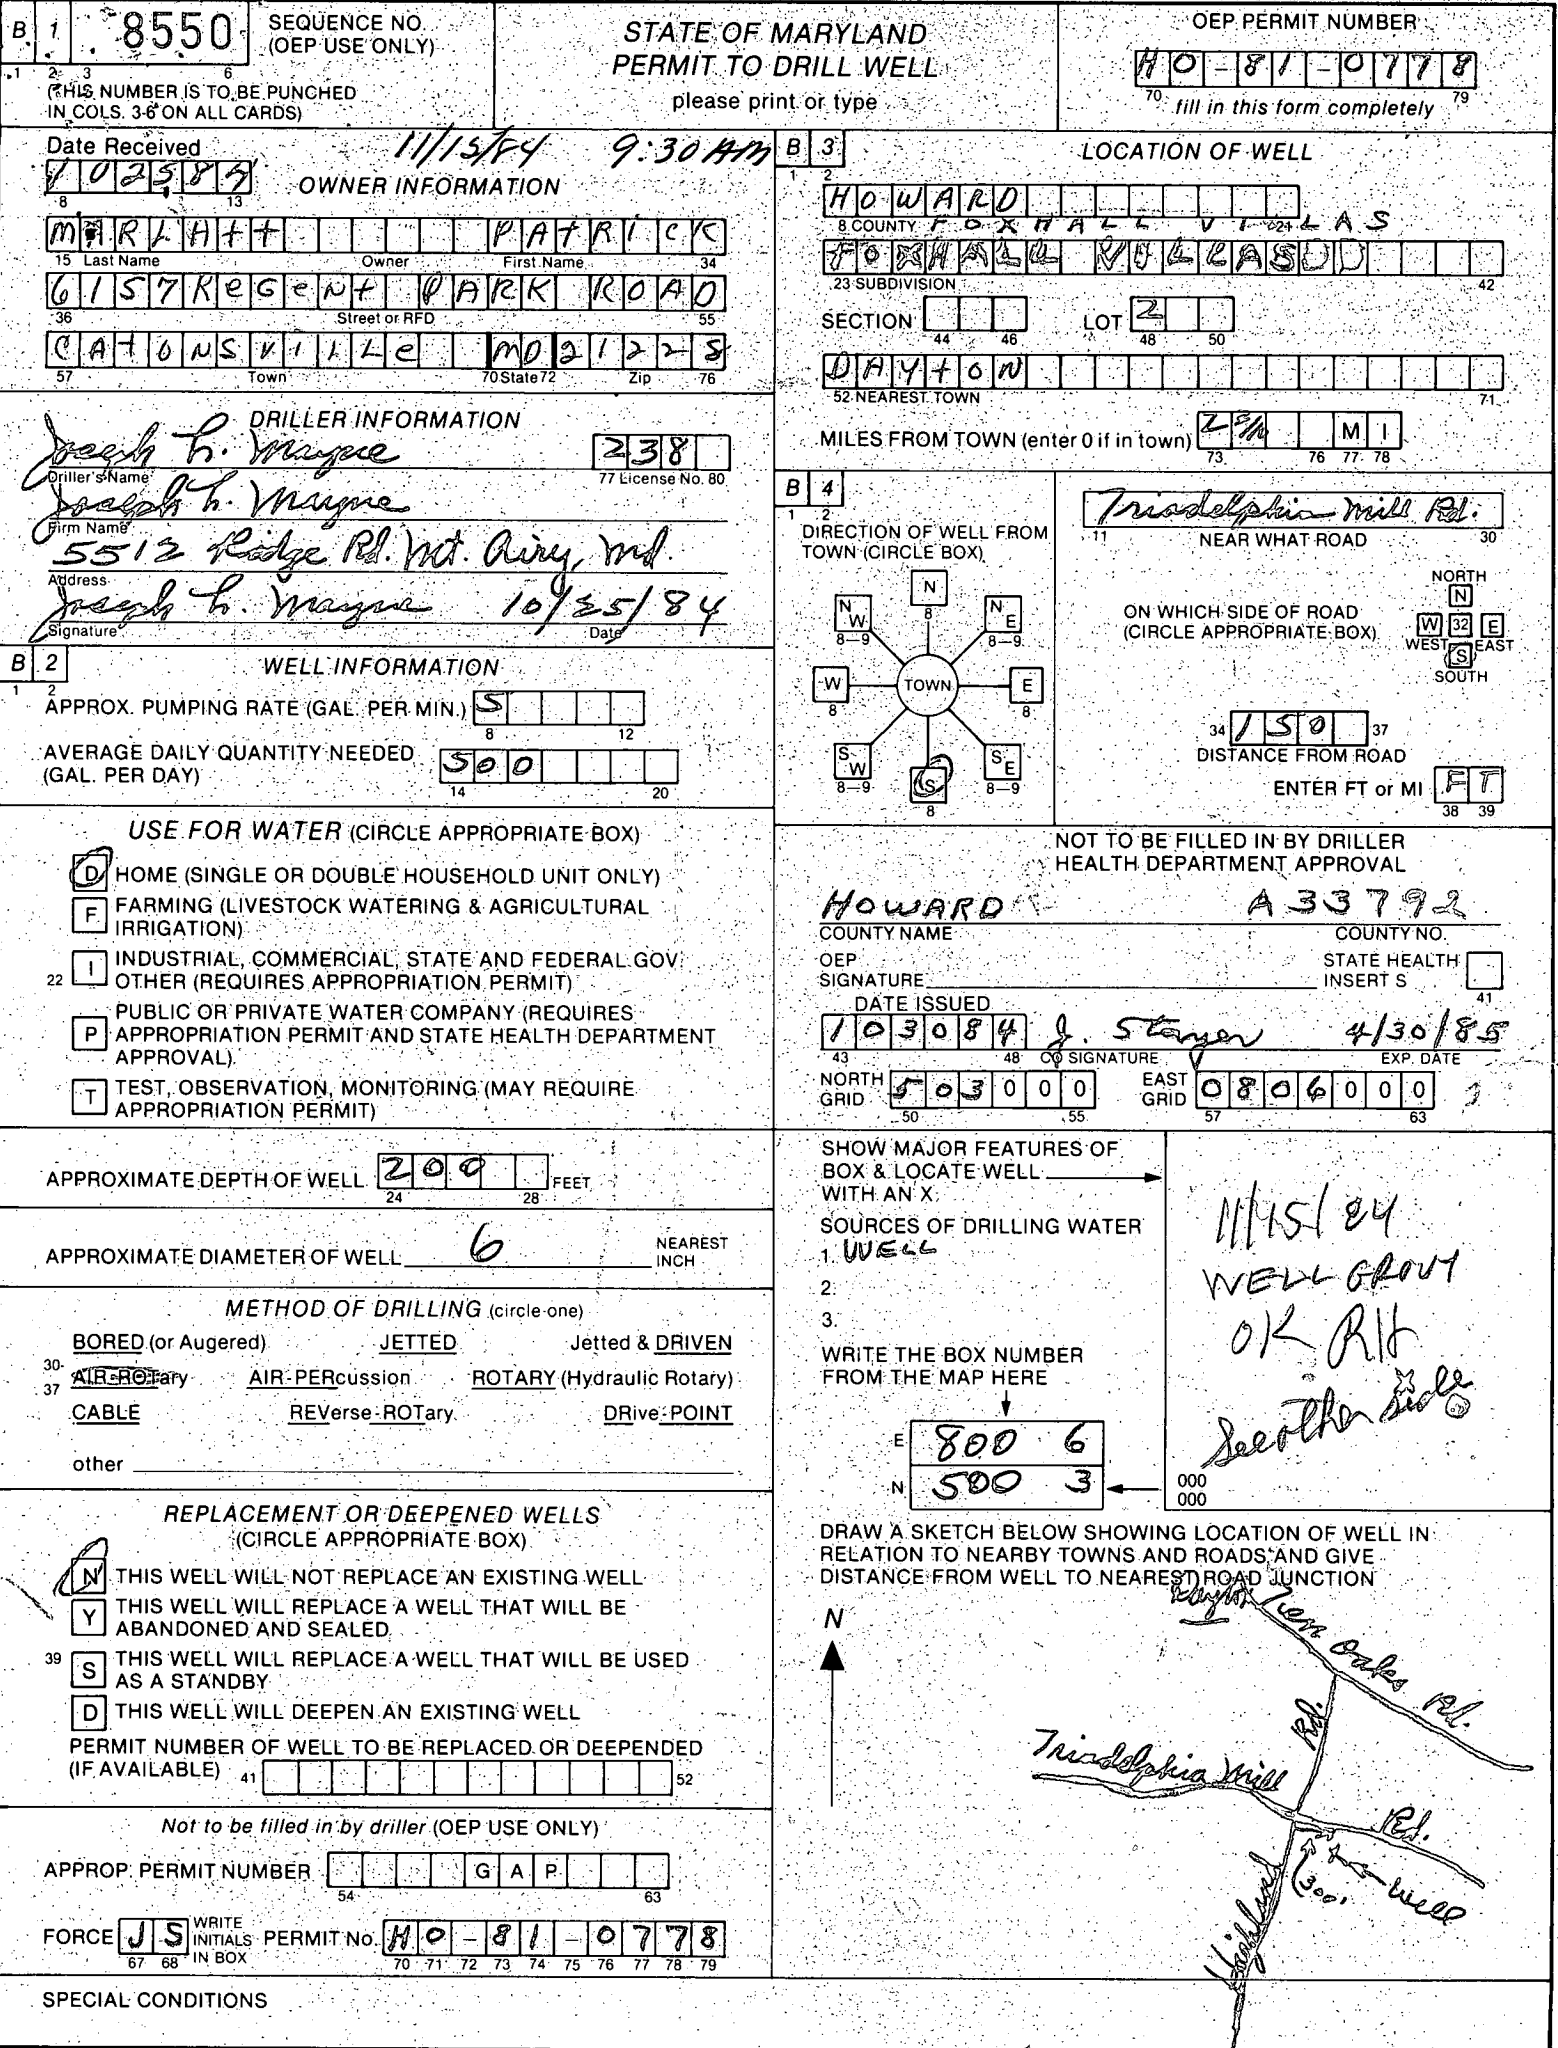 B 1 8550 SEQUENCE NO. (OEP USE ONLY)
1 2 3 6
(THIS NUMBER IS TO BE PUNCHED
IN COLS. 3-6 ON ALL CARDS)
STATE OF MARYLAND
PERMIT TO DRILL WELL
please print or type
OEP PERMIT NUMBER
HO-81-0778
70 fill in this form completely 79
Date Received 11/15/84 9:30 AM
102584
8 13
OWNER INFORMATION
MARLAtt PAtRICK
15 Last Name Owner First Name 34
6157 ReGeNt PARK ROAD
36 Street or RFD 55
CAtONSVILLe MD 21228
57 Town 70 State 72 Zip 76
DRILLER INFORMATION
Joseph L. Mayne 238
Driller's Name 77 License No. 80
Joseph L. Mayne
Firm Name
5512 Ridge Rd. Mt. Airy, Md.
Address
Joseph L. Mayne 10/25/84
Signature Date
B 2 WELL INFORMATION
1 2
APPROX. PUMPING RATE (GAL. PER MIN.) 5
8 12
AVERAGE DAILY QUANTITY NEEDED
(GAL. PER DAY) 500
14 20
USE FOR WATER (CIRCLE APPROPRIATE BOX)
D HOME (SINGLE OR DOUBLE HOUSEHOLD UNIT ONLY)
F FARMING (LIVESTOCK WATERING & AGRICULTURAL
IRRIGATION)
22 I INDUSTRIAL, COMMERCIAL, STATE AND FEDERAL GOV.
OTHER (REQUIRES APPROPRIATION PERMIT)
P PUBLIC OR PRIVATE WATER COMPANY (REQUIRES
APPROPRIATION PERMIT AND STATE HEALTH DEPARTMENT
APPROVAL)
T TEST, OBSERVATION, MONITORING (MAY REQUIRE
APPROPRIATION PERMIT)
APPROXIMATE DEPTH OF WELL 200 FEET
24 28
APPROXIMATE DIAMETER OF WELL 6 NEAREST
INCH
METHOD OF DRILLING (circle one)
BORED (or Augered) JETTED Jetted & DRIVEN
30-37 AIR-ROTary AIR-PERcussion ROTARY (Hydraulic Rotary)
CABLE REVerse-ROTary DRive-POINT
other
REPLACEMENT OR DEEPENED WELLS
(CIRCLE APPROPRIATE BOX)
N THIS WELL WILL NOT REPLACE AN EXISTING WELL
Y THIS WELL WILL REPLACE A WELL THAT WILL BE
ABANDONED AND SEALED
39 S THIS WELL WILL REPLACE A WELL THAT WILL BE USED
AS A STANDBY
D THIS WELL WILL DEEPEN AN EXISTING WELL
PERMIT NUMBER OF WELL TO BE REPLACED OR DEEPENDED
(IF AVAILABLE) 41 52
Not to be filled in by driller (OEP USE ONLY)
APPROP. PERMIT NUMBER G A P
54 63
FORCE JS WRITE INITIALS IN BOX PERMIT No. HO-81-0778
67 68 70 71 72 73 74 75 76 77 78 79
SPECIAL CONDITIONS
B 3 LOCATION OF WELL
1 2
HOWARD
8 COUNTY 21
FOXHALL VILLAS
FOXHALL VILLAS
23 SUBDIVISION 42
SECTION LOT 2
44 46 48 50
DAYtON
52 NEAREST TOWN 71
MILES FROM TOWN (enter 0 if in town) 2 3/4 MI
73 76 77 78
B 4
1 2
DIRECTION OF WELL FROM
TOWN (CIRCLE BOX)
N
8
NW NE
8-9 8-9
W TOWN E
8 8
SW S SE
8-9 8 8-9
Triadelphia Mill Rd.
11 NEAR WHAT ROAD 30
ON WHICH SIDE OF ROAD
(CIRCLE APPROPRIATE BOX)
NORTH
N
W 32 E
WEST EAST
S
SOUTH
34 150 37
DISTANCE FROM ROAD
ENTER FT or MI FT
38 39
NOT TO BE FILLED IN BY DRILLER
HEALTH DEPARTMENT APPROVAL
HOWARD A33792
COUNTY NAME COUNTY NO.
OEP
SIGNATURE STATE HEALTH
INSERT S
41
DATE ISSUED
103084 J. Stayer 4/30/85
43 48 CO SIGNATURE EXP. DATE
NORTH GRID 503000 EAST GRID 0806000
50 55 57 63
SHOW MAJOR FEATURES OF
BOX & LOCATE WELL
WITH AN X
SOURCES OF DRILLING WATER
1. WELL
2.
3.
WRITE THE BOX NUMBER
FROM THE MAP HERE
E 800 6
N 500 3
11/15/84
WELL GROUT
OK RH
See other side
000
000
DRAW A SKETCH BELOW SHOWING LOCATION OF WELL IN
RELATION TO NEARBY TOWNS AND ROADS AND GIVE
DISTANCE FROM WELL TO NEAREST ROAD JUNCTION
N
Dayton
Ten Oaks Rd.
Rd.
Triadelphia Mill
Rd.
300'
Well
Highland